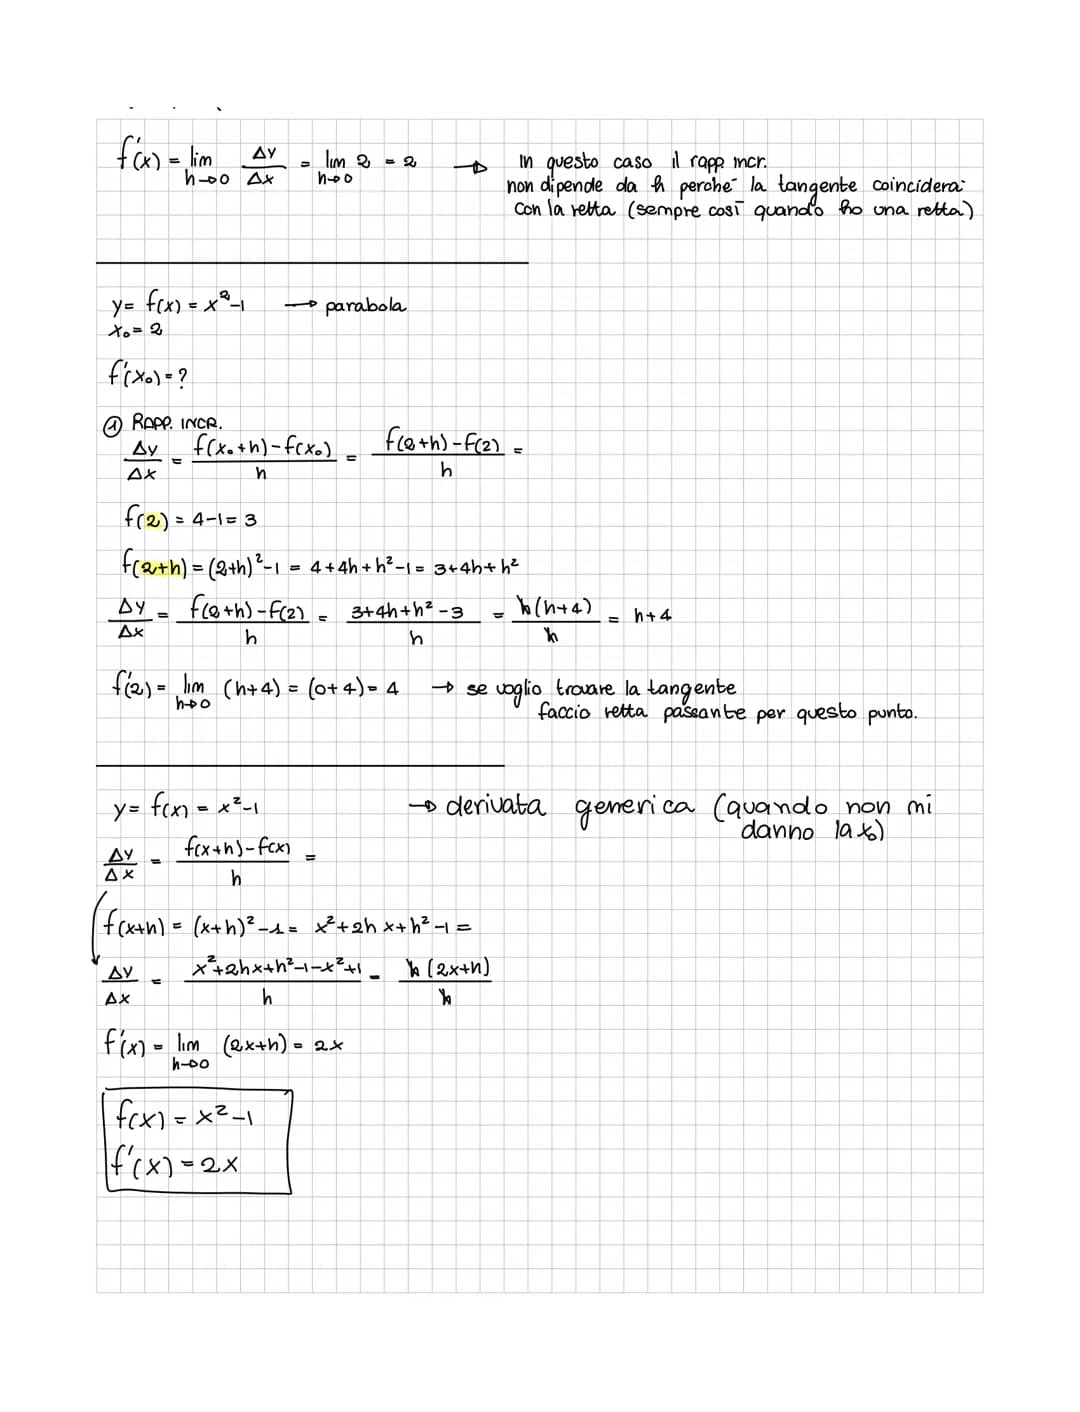 f'(x) = lim h→0 Δy/Δx = lim h→0 2 = 2 → In questo caso il rapp incr.
non dipende da h perché la tangente coinciderà
con la retta (sempre così quando ho una retta)
y = f(x) = x²-1 → parabola
x₀ = 2
f'(x₀) = ?
① RAPP. INCR.
Δy/Δx = f(x₀+h)-f(x₀)/h = f(2+h)-f(2)/h =
f(2) = 4-1 = 3
f(2+h) = (2+h)²-1 = 4+4h+h²-1 = 3+4h+h²
Δy/Δx = f(2+h)-f(2)/h = 3+4h+h²-3/h = h(h+4)/h = h+4
f'(2) = lim h→0 (h+4) = (0+4) = 4 → se voglio trovare la tangente
faccio retta passante per questo punto.
y = f(x) = x²-1 → derivata generica (quando non mi
danno la x₀)
Δy/Δx = f(x+h)-f(x)/h =
f(x+h) = (x+h)²-1 = x²+2hx+h²-1 =
Δy/Δx = x²+2hx+h²-1-x²+1/h = h(2x+h)/h
f'(x) = lim h→0 (2x+h) = 2x
f(x) = x²-1
f'(x) = 2x